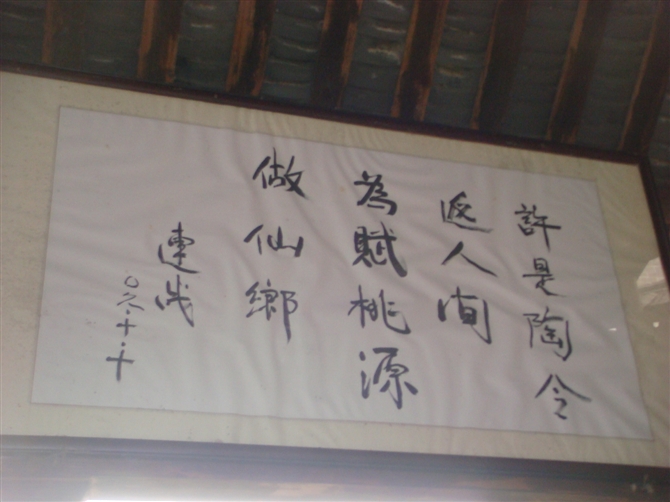 許是陶令
返人间
為賦桃源
做仙鄉
連成
〇六.十.十